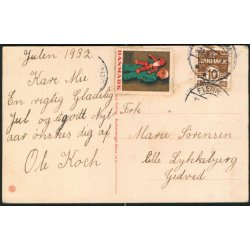 Julen 1932
Kære Mie
En rigtig Glædelig
Jul og godt Nyt-
aar ønskes dig af
Ole Koch
DANMARK
DANMARK
10
Frk
Marie Sørensen
Lille Lykkebjerg
Gedved